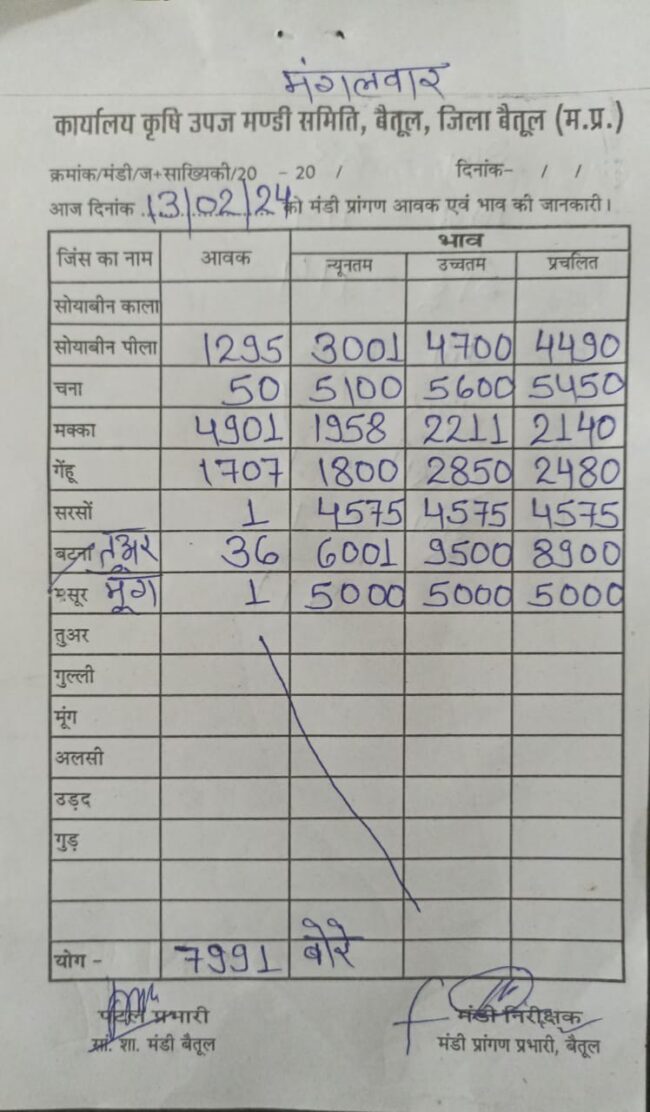 मंगलवार
कार्यालय कृषि उपज मण्डी समिति, बैतूल, जिला बैतूल (म.प्र.)
क्रमांक/मंडी/ज+साख्यिकी/20 - 20 / दिनांक- / /
आज दिनांक 13/02/24 को मंडी प्रांगण आवक एवं भाव की जानकारी।
जिंस का नाम आवक भाव
न्यूनतम उच्चतम प्रचलित
सोयाबीन काला
सोयाबीन पीला 1295 3001 4700 4490
चना 50 5100 5600 5450
मक्का 4901 1958 2211 2140
गेंहू 1707 1800 2850 2480
सरसों 1 4575 4575 4575
बटना तूअर 36 6001 9500 8900
मसूर मूंग 1 5000 5000 5000
तुअर
गुल्ली
मूंग
अलसी
उड़द
गुड़
योग - 7991 बोरे
प्रभारी मंडी निरीक्षक
सां. शा. मंडी बैतूल मंडी प्रांगण प्रभारी, बैतूल